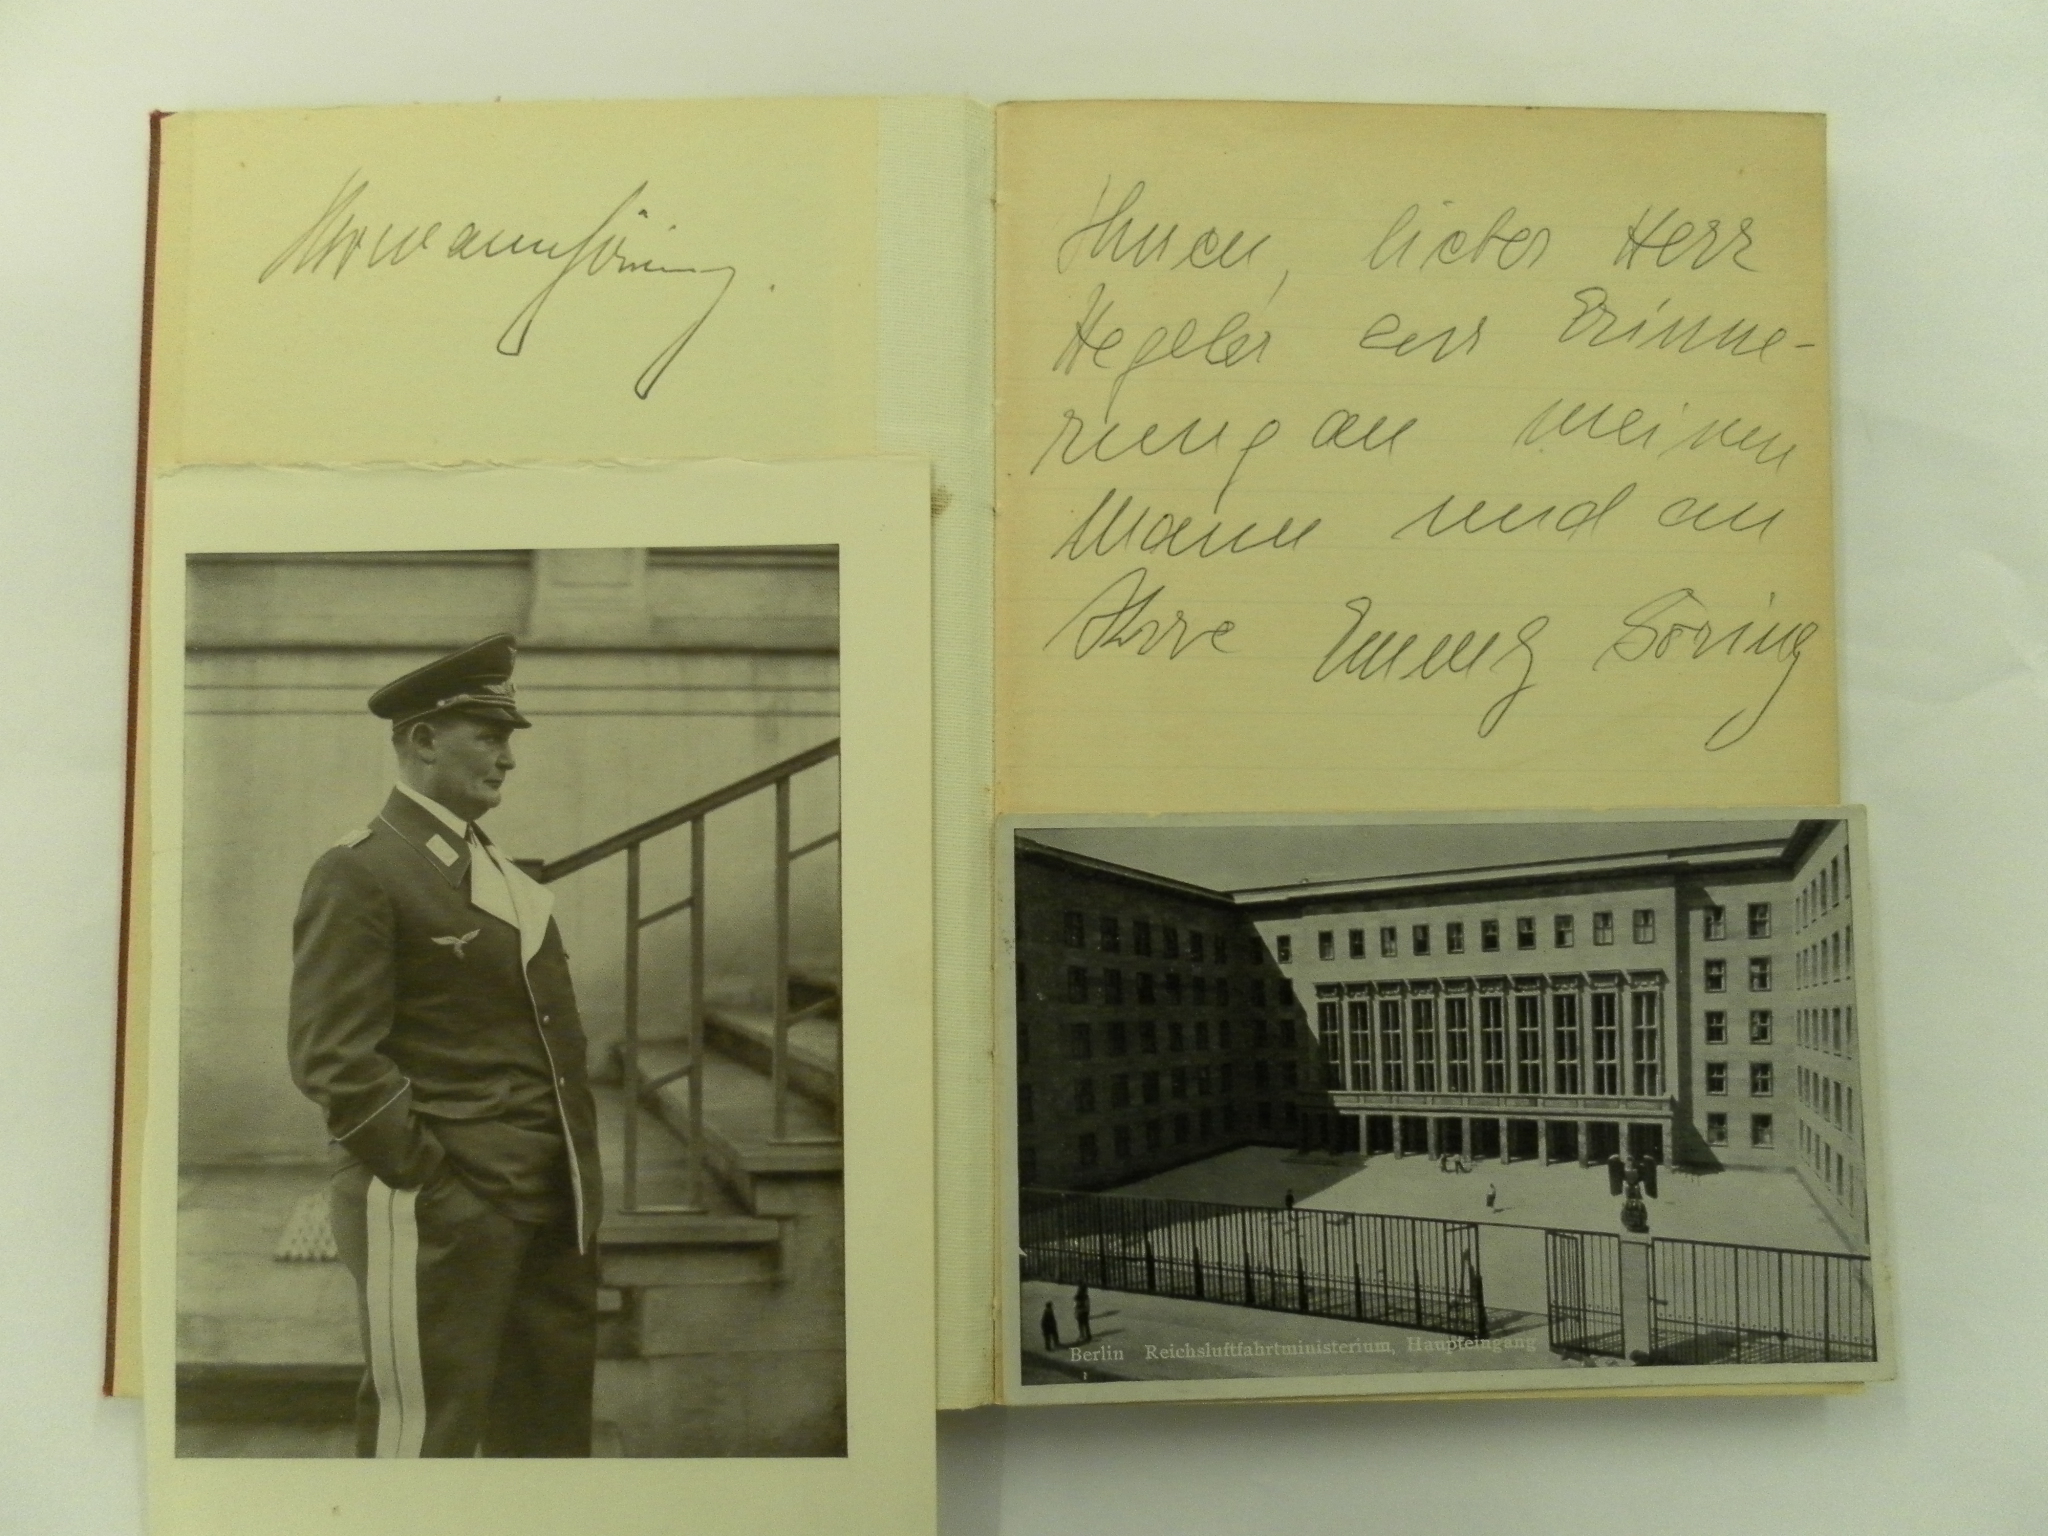 Hermann Göring.
Ihnen, lieber Herr
Hegeler zur Erinne-
rung an meinen
Mann und an
Ihre Emmy Göring
Berlin Reichsluftfahrtministerium, Haupteingang